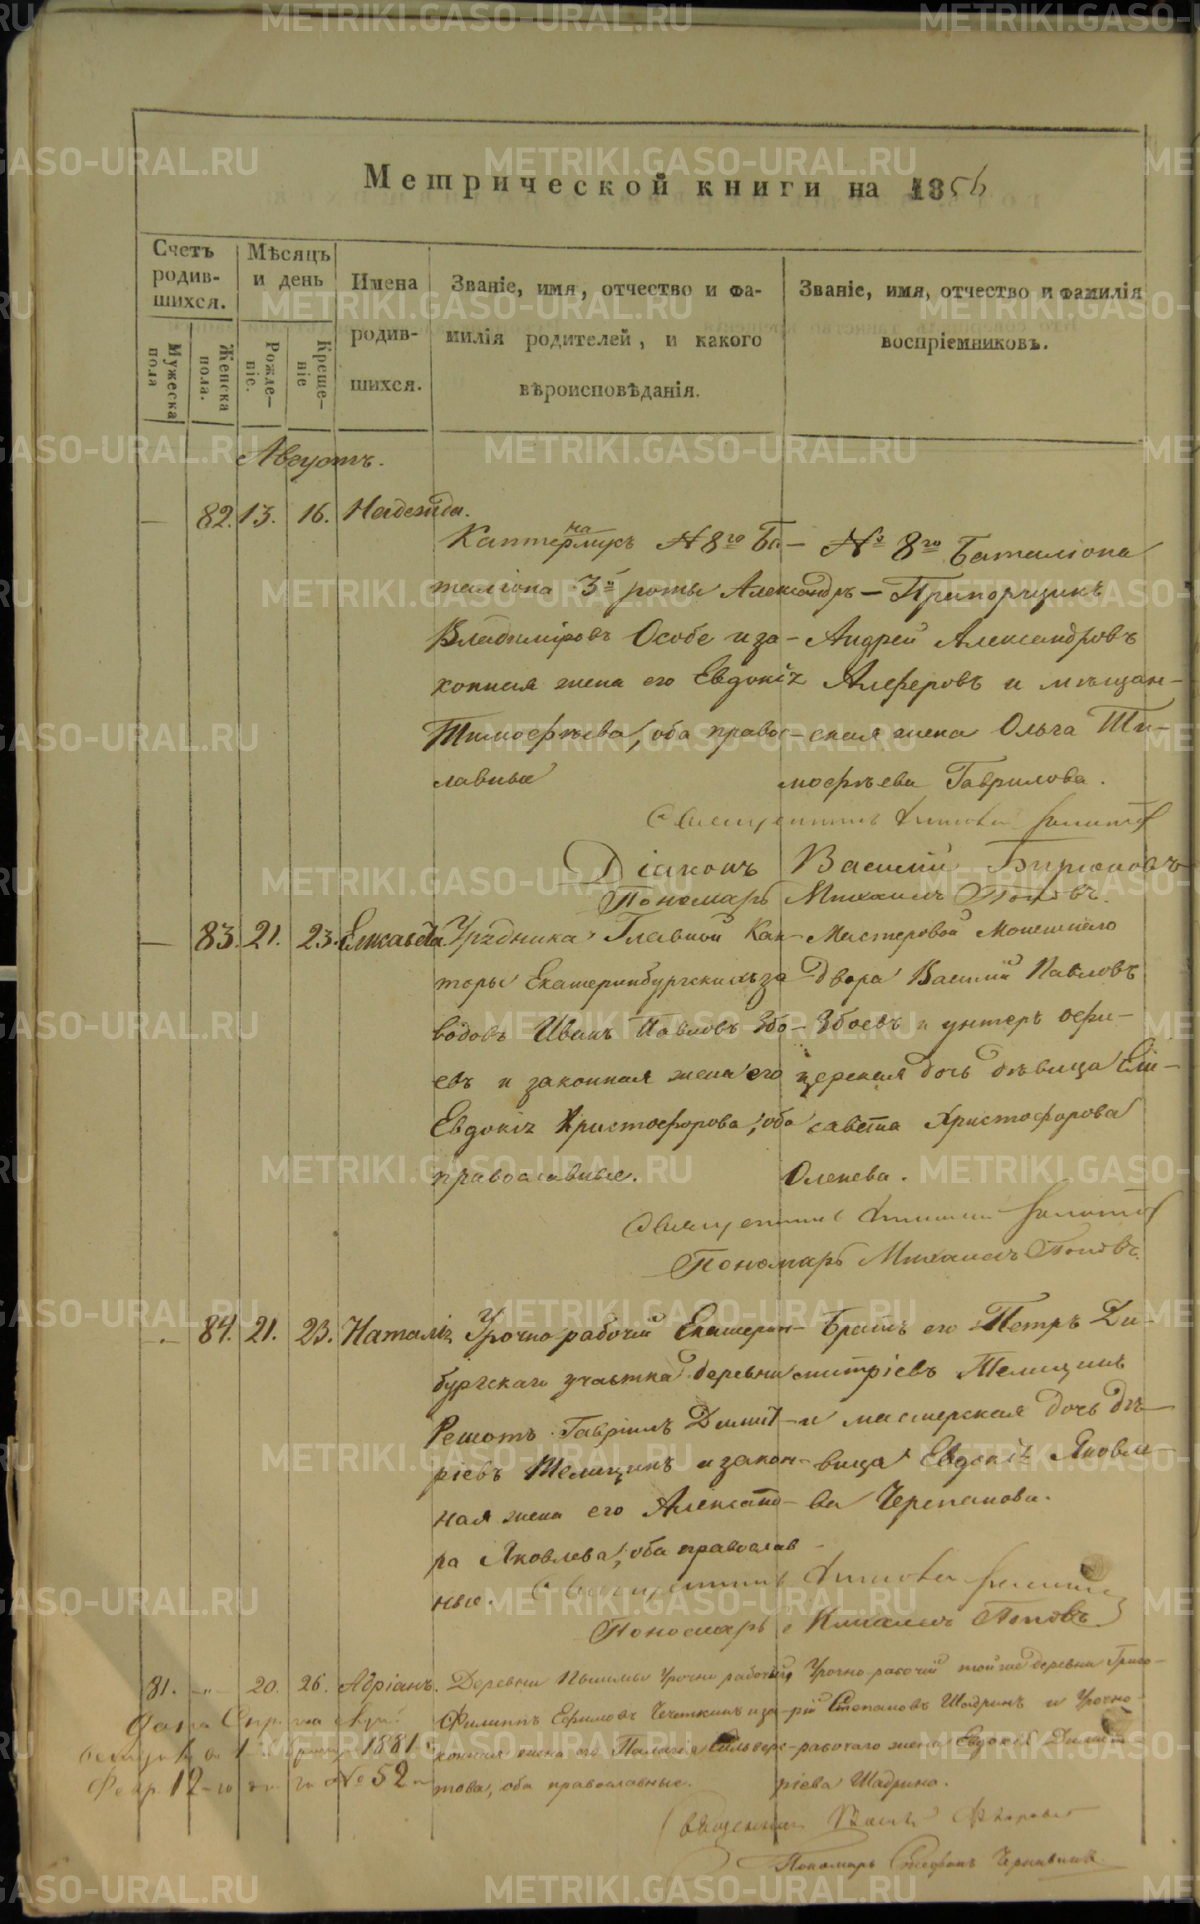 Метрической книги на 1856
Счетъ родившихся.
Мѣсяцъ и день
Имена родившихся.
Званіе, имя, отчество и фамилія родителей, и какого вѣроисповѣданія.
Званіе, имя, отчество и фамилія воспріемниковъ.
Мужеска пола
Женска пола.
Рожденіе.
Крещеніе
Августъ.
— 82. 13. 16. Надежда.
№ 8го Ба-
таліона 3й роты Александръ
Владиміровъ Особе и за-
конная жена его Евдокія
Тимофѣева, оба правос-
лавные
№ 8го Баталіона
Прапорщикъ
Андрей Александровъ
Алферовъ и мѣщан-
ская жена Ольга Ти-
мофѣева Гаврилова.
Діаконъ Василій Бирюковъ
Пономарь Михаилъ Поповъ.
— 83. 21. 23. Елисавета
Урядника Главной Кан-
торы Екатеринбургскихъ за-
водовъ Иванъ Павловъ Збо-
евъ и законная жена его
Евдокія Христофорова, оба
православные.
Мастеровой Монетнаго
Двора Василій Павловъ
Збоевъ и унтеръ офи-
церская дочь дѣвица Ели-
савета Христофорова
Оленева.
Пономарь Михаилъ Поповъ.
— 84. 21. 23. Наталія
Урочно рабочій Екатерин-
бургскаго участка деревни
Решотъ Гавріилъ Димит-
ріевъ Телицинъ и закон-
ная жена его Александ-
ра Яковлева, оба православ-
ные.
Братъ его Петръ Ди-
митріевъ Телицинъ
и мастерская дочь дѣ-
вица Евдокія Яковле-
ва Черепанова.
Пономарь Михаилъ Поповъ
81. —"— 20. 26. Адріанъ.
Деревни Пышмы Урочно рабочій
Филиппъ Ефимовъ Чечеткинъ и за-
конная жена его Палагія Сильверс-
това, оба православные.
Урочно рабочій той же деревни Григо-
рій Степановъ Шадринъ и Урочно-
рабочаго жена Евдокія Димит-
ріева Шадрина.
1881
12 № 52
Пономарь Стефанъ
METRIKI.GASO-URAL.RU